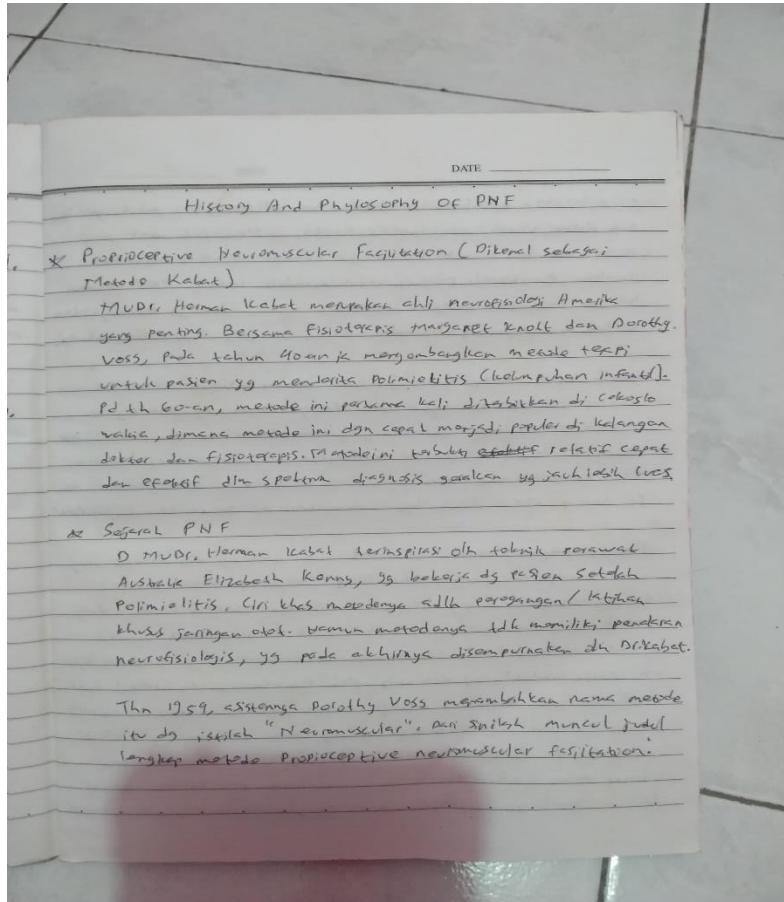 DATE
History And Phylosophy Of PNF
* Proprioceptive Neuromuscular Facilitation (Dikenal sebagai
Metode Kabat)
MUDr. Herman Kabat merupakan ahli neurofisiologi Amerika
yang penting. Bersama fisioterapis Margaret Knott dan Dorothy
Voss, Pada tahun 40an ia mengembangkan metode terapi
untuk pasien yg menderita Polimielitis (kelumpuhan infantil).
Pd th 60-an, metode ini pertama kali diterbitkan di Cekoslo
vakia, dimana metode ini dgn cepat menjadi populer di kalangan
dokter dan fisioterapis. Metode ini terbukti efektif relatif cepat
dan efektif dlm spektrum diagnosis gerakan yg jauh lebih luas.
* Sejarah PNF
D MUDr. Herman Kabat terinspirasi oln teknik perawat
Australia Elizabeth Kenny, yg bekerja dg pasien setelah
Polimielitis. Ciri khas metodenya adlh peregangan / latihan
khusus jaringan otot. Namun metodenya tdk memiliki penalaran
neurofisiologis, yg pada akhirnya disempurnakan oln Dr.Kabat.
Thn 1954, asistennya Dorothy Voss menambahkan nama metode
itu dg istilah "Neuromuscular". Dari sinilah muncul judul
lengkap metode Propioceptive neuromuscular fasilitation.